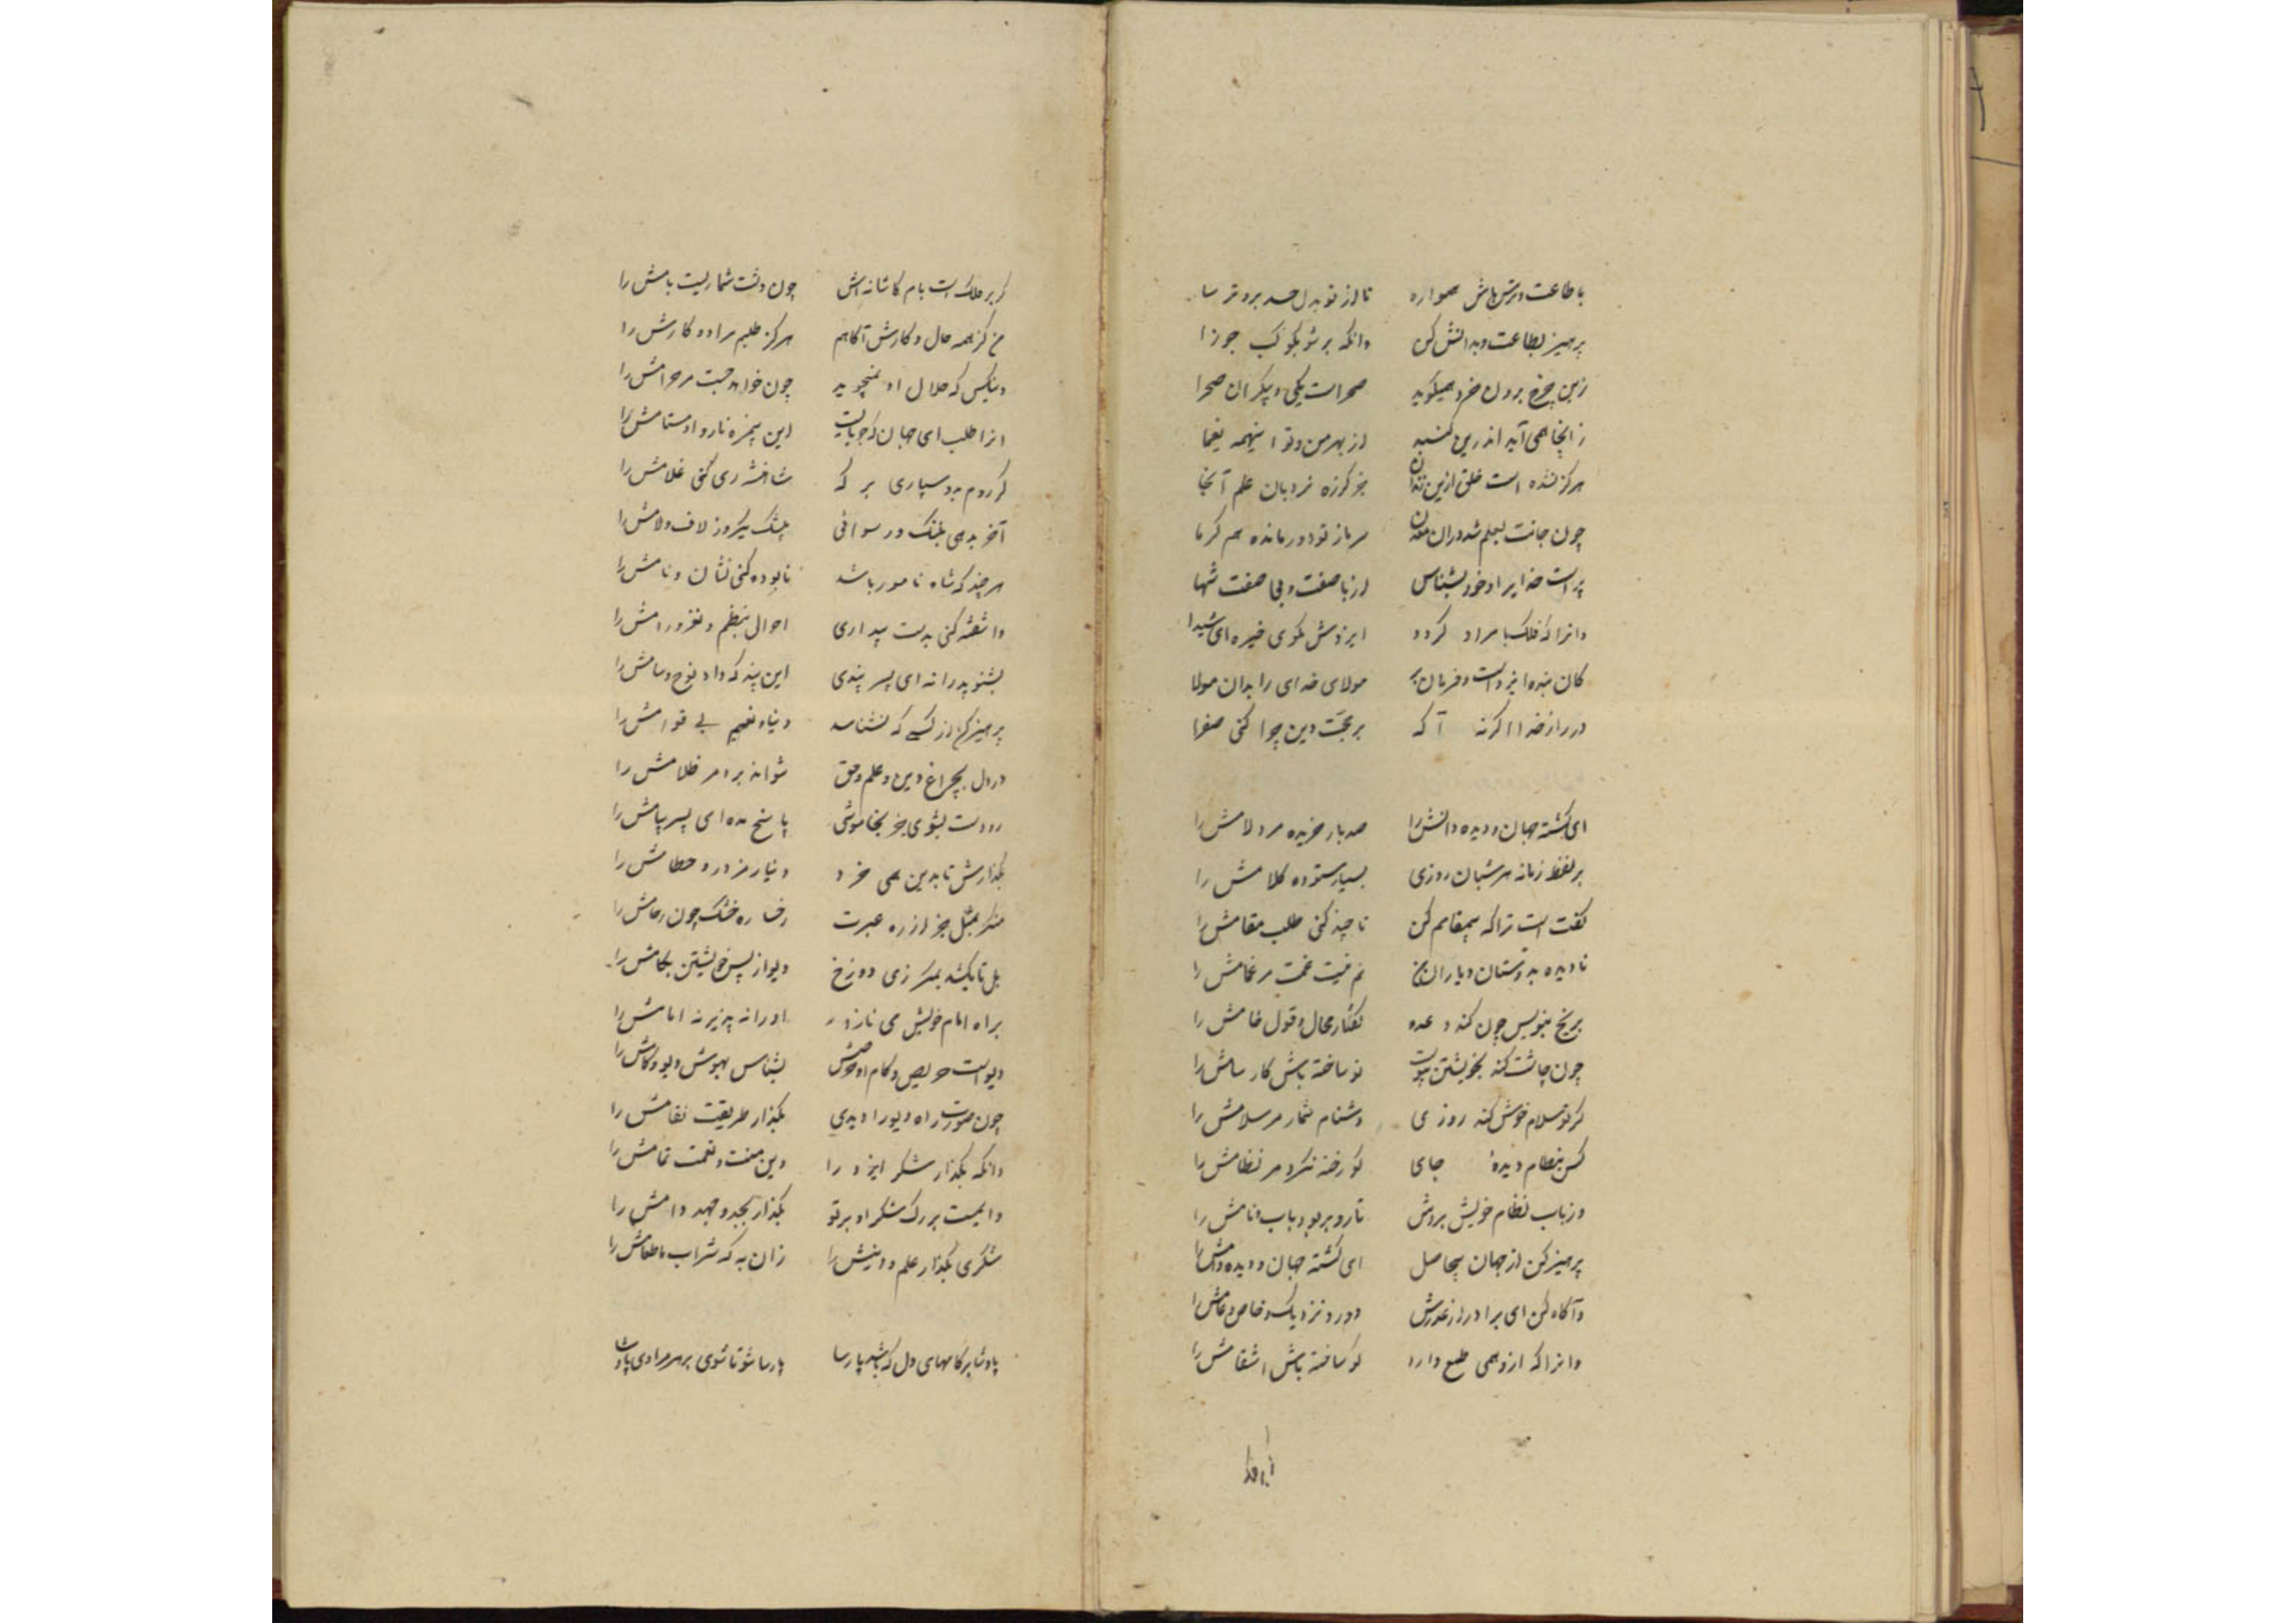 با طاعت و ترس باش همواره تا از تو بدل حسد برد ترسا
پرهیز بطاعت و بدانش کن وانگه بر شو بکوکب جوزا
زین چرخ برون خرد همیگوید صحراست یکی و بیکران صحرا
زانجا همی آید اندرین گنبد از بهر من و تو اینهمه یغما
هرگز نشده است خلق ازین زندان جز کز ره نردبان علم آنجا
چون جانت بعلم شد دران معدن سرماز تو دور مانده هم گرما
پر است خدایرا و خود بشناس از با صفت و بی صفت تنها
وانرا که فلک با مراد گردد ایزدش مگوی خیره ای شیدا
کان بنده ایزد است و فرمان بر مولای خدای را بدان مولا
در راز خدا اگر نه آگه بر حجت دین چرا کنی صفرا
ای گشته جهان و دیده دامش را صد بار خریده مر دلامش را
بر لفظ زمانه هر شبان روزی بسیار ستوده کلامش را
گفت است ترا که بیمقامم من تا چند کنی طلب مقامش را
نادیده به دوستان و یاران من نم نیست غمت مر غمامش را
بر یخ بنویس چون کند وعده گفتار محال و قول خامش را
چون چاشت کند بخویشتن پیوست تو ساخته باش کار شامش را
گر بر تو سلام خوش کند روزی دشنام شمار مر سلامش را
کس بنظام دیده جای کو رخنه نکرد مر نظامش را
وز باب نظام خویش بردش تار و بر بود باب و نامش را
پرهیز کن از جهان بیحاصل ای گشته جهان و دیده دامش را
وآگاه کن ای برادر از غدرش دور و نزدیک و خاص و عامش را
وانرا که ازو همی طمع دارد گو ساخته باش انتقامش را
گر بر فلک است بام کاشانه اش چون دشت شمار پست بامش را
من کز همه حال و کارش آگاهم هرگز طلبم مراد و کامش را
وینکس که حلال او نمیجوید چون خواهد جست مر حرامش را
این بیمزه نار و او ستامش را
گر ردم بدو سپاری بر که شاخش ری کنی غلامش را
آخر بدهی بننگ و رسوائی بیشک یکروز لاف و لامش را
هر چند که شاه نامور باشد نابوده کنی نشان و نامش را
وآشفته کنی بدست بیداری احوال بنظم و نغز و رامش را
بشنو پدرانه ای پسر پندی این پند که داد نوح و سامش را
پرهیز کن از کسی که نشناسد دنیا و نعیم بی قوامش را
در دل بچراغ دین و علم و حق نتواند برد مر ظلامش را
رو دست بشوی جز بخاموشی پاسخ مده ای پسر پیامش را
بگذارش تا بدین همی خرد دنیا و مزور و حطامش را
منگر بمثل جز از ره عبرت رخساره خشک چون رخامش را
بل تا بکشد بمکر زی دوزخ دیو از پس خویشتن لگامش را
بر راه امام خویش می نازد او را نه پذیرند امامش را
دیو است حریص و کام او حرصش بشناس بهوش دیو و کامش را
چون صورت راه دیو را دیدی بگذار طریقت نقامش را
وانگه بگذار شکر ایزد را وین منت و نعمت تمامش را
وامیست بزرگ شکر او بر تو بگذار بجد و جهد وامش را
شکری بگذار علم و دینش را زان به که شراب یا طعامش را
پادشا بر کامهای دل که باشد پارسا پارسا شو تا شوی بر هر مرادی پادشا